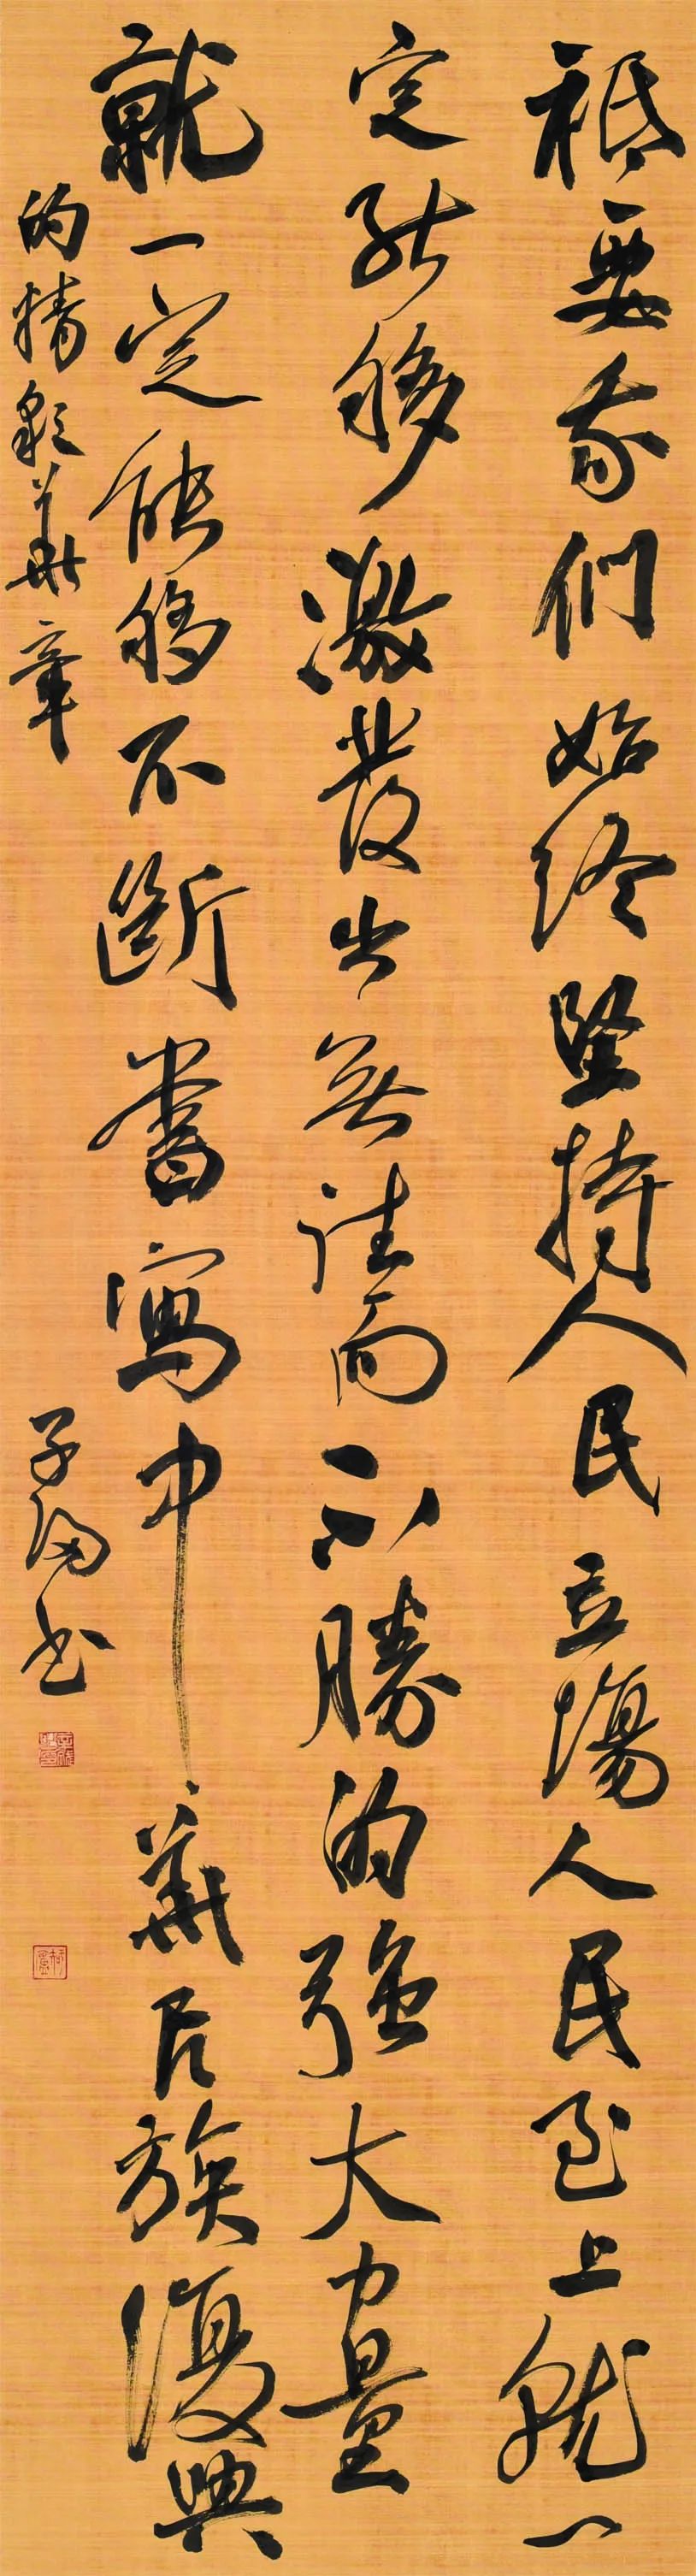 祇要我們始終堅持人民立場人民至上就一
定能夠激發出無往而不勝的強大力量
就一定能夠不斷書寫中華民族復興
的精彩華章
子陽書